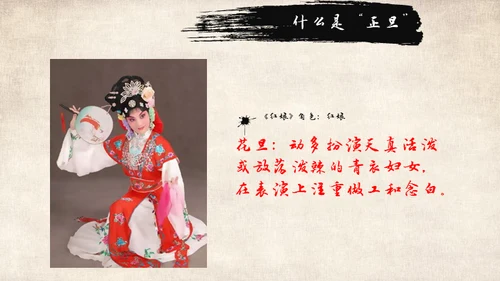 什么是“正旦”
《红娘》角色：红娘
花旦：动多扮演天真活泼
或放荡泼辣的青衣妇女，
在表演上注重做工和念白。